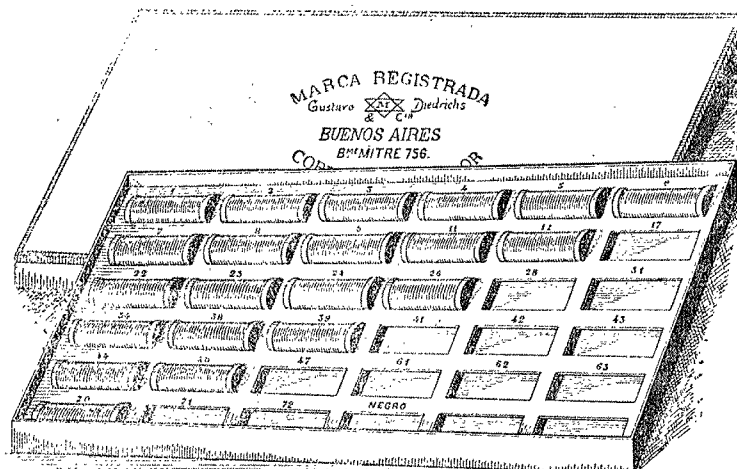 MARCA REGISTRADA
Gustavo M Diedrichs
& Cía
BUENOS AIRES
Bmé MITRE 756.
1 2 3 4 5 6
7 8 9 11 12 17
22 23 24 26 28 31
34 38 39 41 42 43
44 46 47 61 62 63
70 71 72 NEGRO